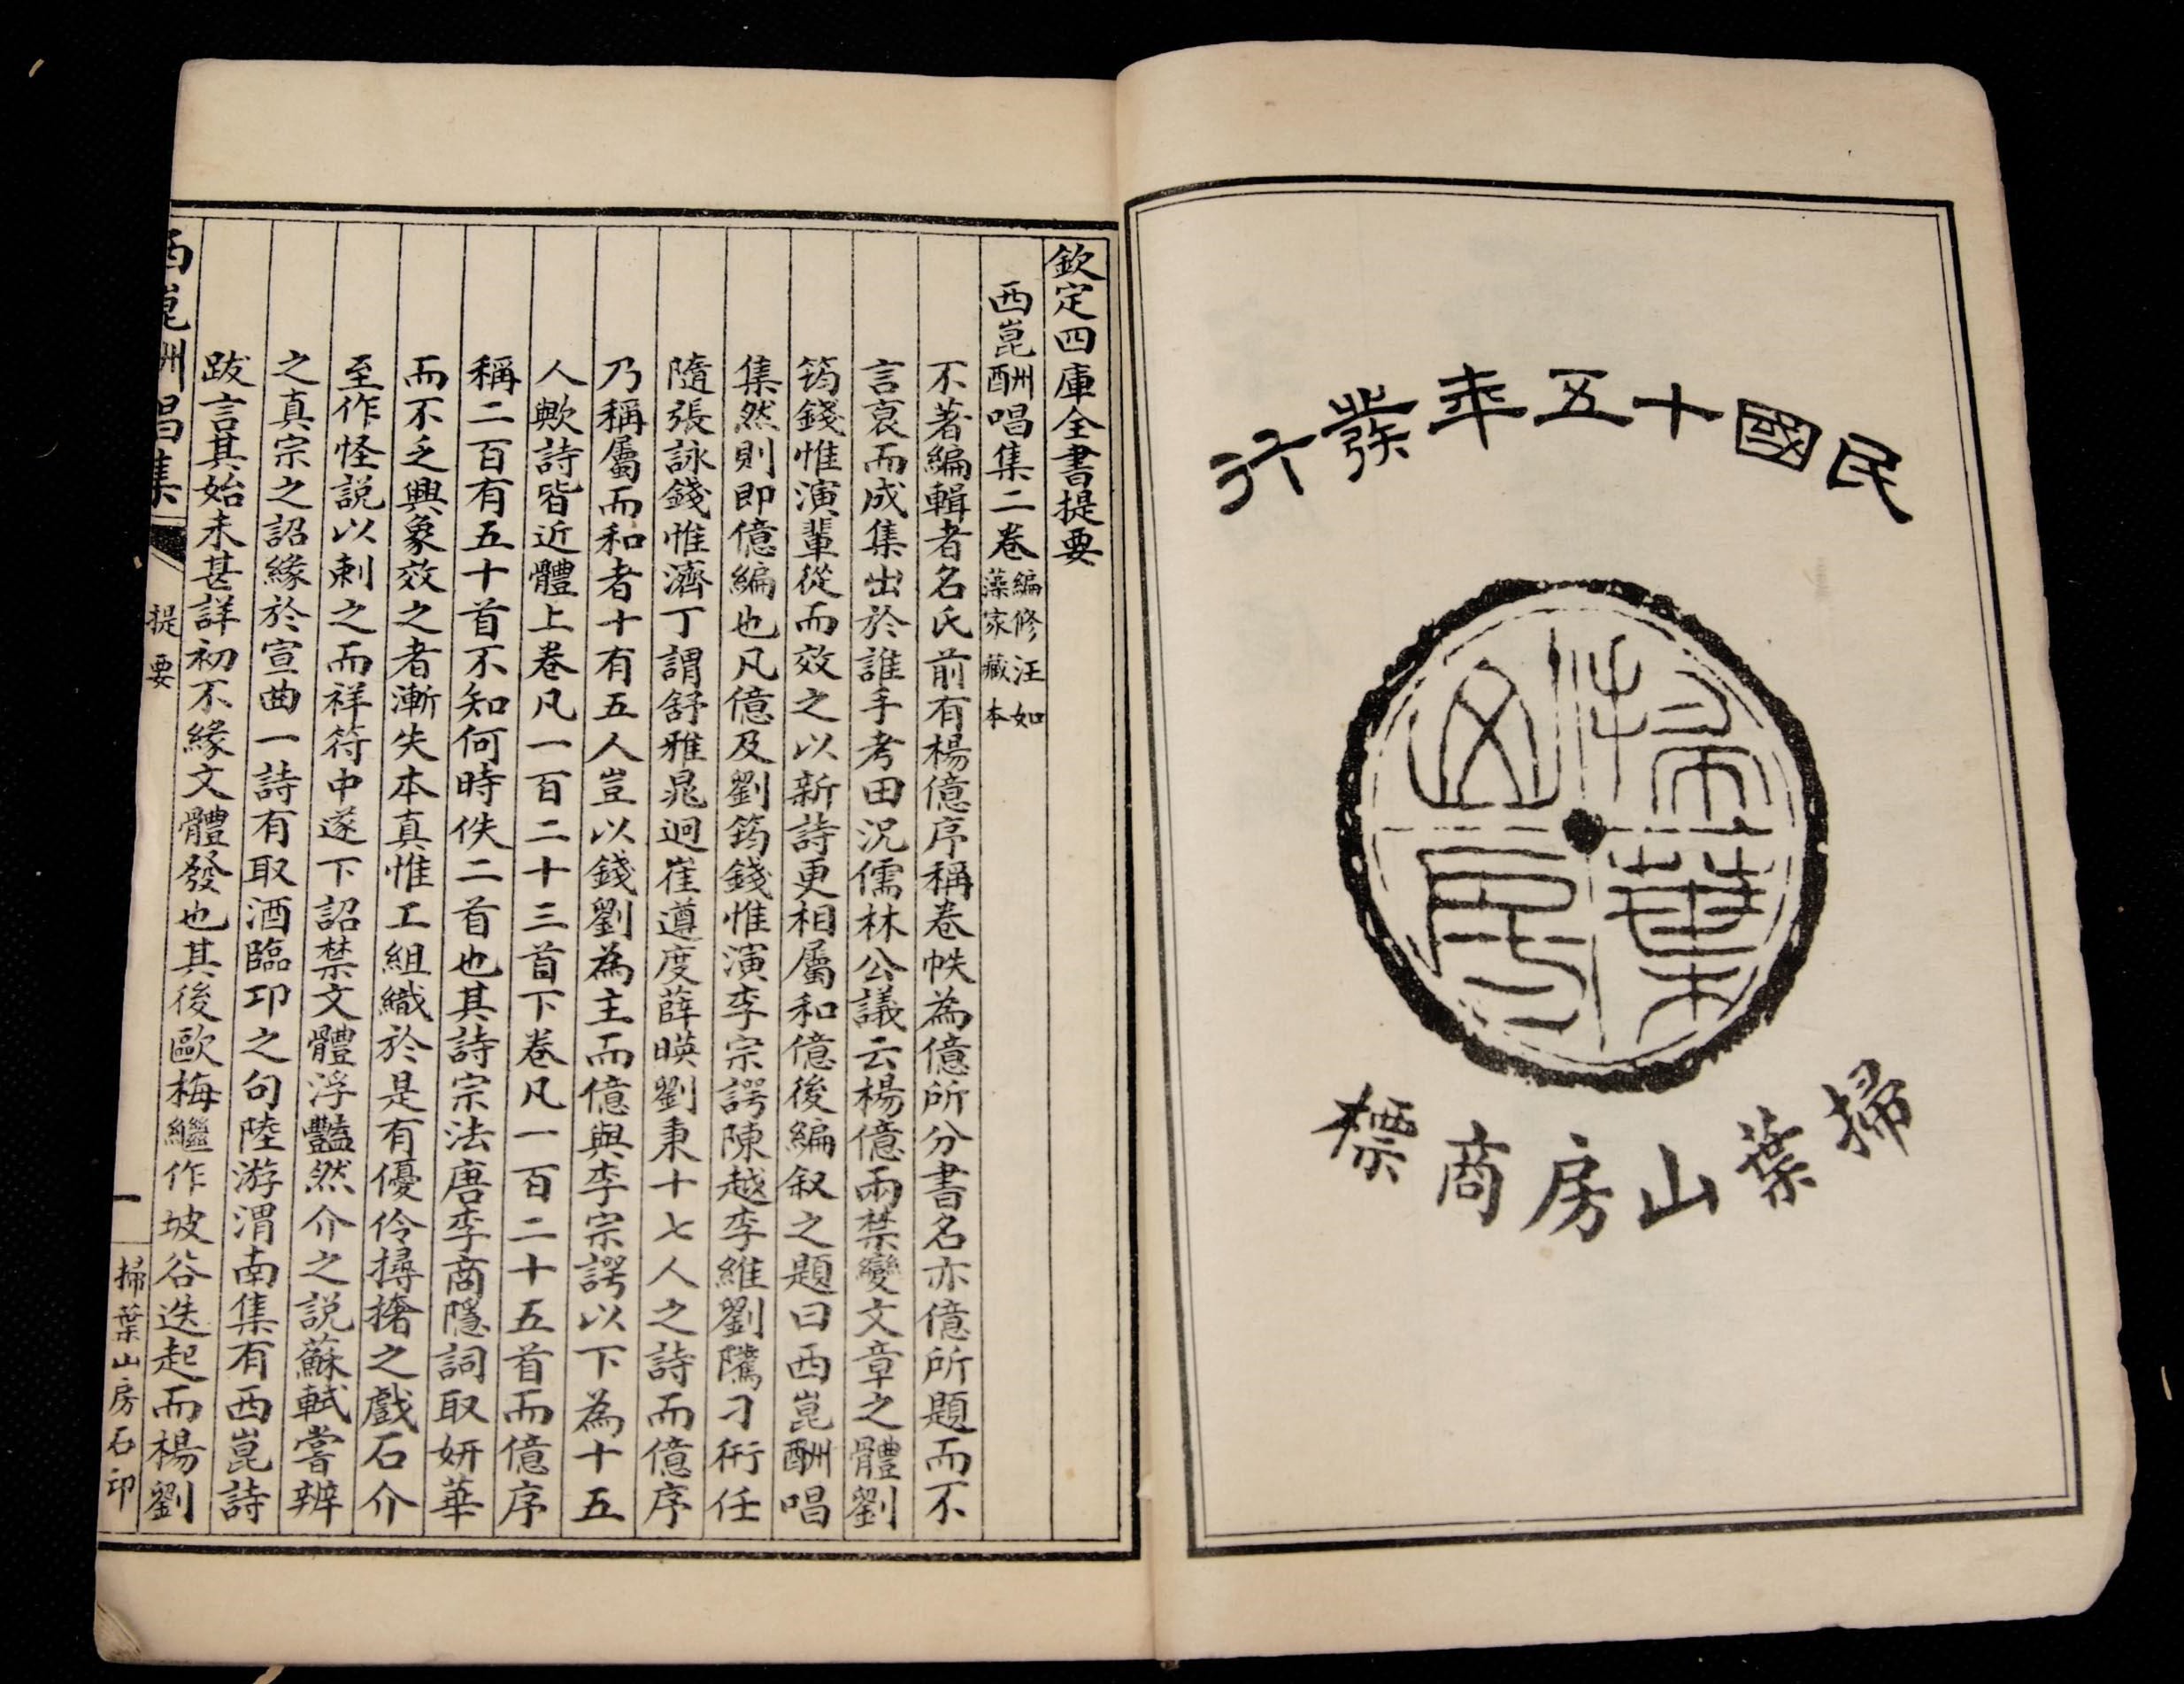 民國十五年發行
掃葉山房
掃葉山房商標
欽定四庫全書提要
西崑酬唱集二卷
編修汪如
藻家藏本
不著編輯者名氏前有楊億序稱卷帙為億所分書名亦億所題而不
言裒而成集出於誰手考田況儒林公議云楊億兩禁變文章之體劉
筠錢惟演輩從而效之以新詩更相屬和億後編叙之題曰西崑酬唱
集然則即億編也凡億及劉筠錢惟演李宗諤陳越李維劉隲刁衎任
隨張詠錢惟濟丁謂舒雅晁迥崔遵度薛暎劉秉十七人之詩而億序
乃稱屬而和者十有五人豈以錢劉為主而億與李宗諤以下為十五
人歟詩皆近體上卷凡一百二十三首下卷凡一百二十五首而億序
稱二百有五十首不知何時佚二首也其詩宗法唐李商隱詞取妍華
而不乏興象效之者漸失本真惟工組織於是有優伶撏撦之戲石介
至作怪説以刺之而祥符中遂下詔禁文體浮豔然介之説蘇軾嘗辨
之真宗之詔緣於宣曲一詩有取酒臨邛之句陸游渭南集有西崑詩
跋言其始末甚詳初不緣文體發也其後歐梅繼作坡谷迭起而楊劉
西崑酬唱集
提要
一
掃葉山房石印